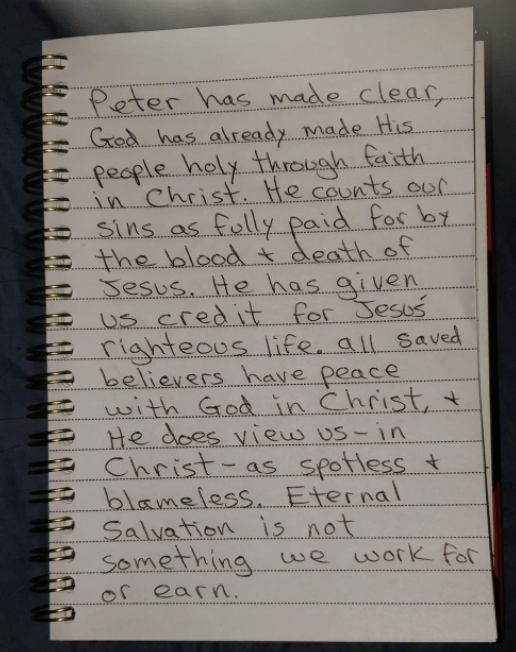 Peter has made clear,
God has already made His
people holy through faith
in Christ. He counts our
sins as fully paid for by
the blood + death of
Jesus. He has given
us credit for Jesus'
righteous life. all saved
believers have peace
with God in Christ, +
He does view us-in
Christ-as spotless +
blameless. Eternal
Salvation is not
something we work for
or earn.